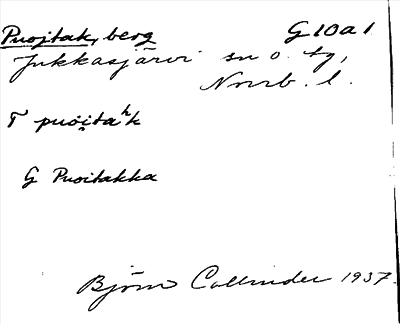 Puojtak, berg G10a1
Jukkasjärvi sn o. tg,
Norrb. l.
T puoi̯taʰk
G Puoitakka
Björn Collinder 1937.